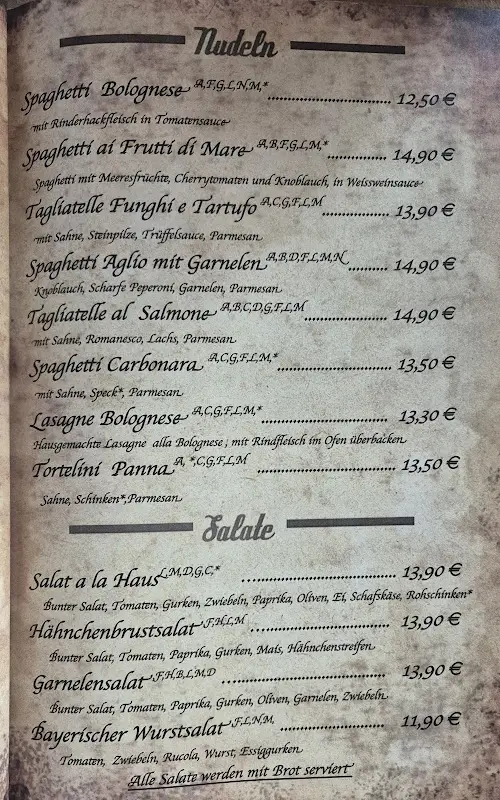 Nudeln
Spaghetti Bolognese A,F,G,L,N,M,* 12,50 €
mit Rinderhackfleisch in Tomatensauce
Spaghetti ai Frutti di Mare A,B,F,G,L,M,* 14,90 €
Spaghetti mit Meeresfrüchte, Cherrytomaten und Knoblauch, in Weissweinsauce
Tagliatelle Funghi e Tartufo A,C,G,F,L,M 13,90 €
mit Sahne, Steinpilze, Trüffelsauce, Parmesan
Spaghetti Aglio mit Garnelen A,B,D,F,L,M,N 14,90 €
Knoblauch, Scharfe Peperoni, Garnelen, Parmesan
Tagliatelle al Salmone A,B,C,D,G,F,L,M 14,90 €
mit Sahne, Romanesco, Lachs, Parmesan
Spaghetti Carbonara A,C,G,F,L,M,* 13,50 €
mit Sahne, Speck*, Parmesan
Lasagne Bolognese A,C,G,F,L,M,* 13,30 €
Hausgemachte Lasagne alla Bolognese, mit Rindfleisch im Ofen überbacken
Tortelini Panna A, *,C,G,F,L,M 13,50 €
Sahne, Schinken*,Parmesan
Salate
Salat a la Haus L,M,D,G,C,* 13,90 €
Bunter Salat, Tomaten, Gurken, Zwiebeln, Paprika, Oliven, Ei, Schafskäse, Rohschinken*
Hähnchenbrustsalat F,H,L,M 13,90 €
Bunter Salat, Tomaten, Paprika, Gurken, Mais, Hähnchenstreifen
Garnelensalat F,H,B,L,M,D 13,90 €
Bunter Salat, Tomaten, Paprika, Gurken, Oliven, Garnelen, Zwiebeln
Bayerischer Wurstsalat F,L,N,M, 11,90 €
Tomaten, Zwiebeln, Rucola, Wurst, Essiggurken
Alle Salate werden mit Brot serviert